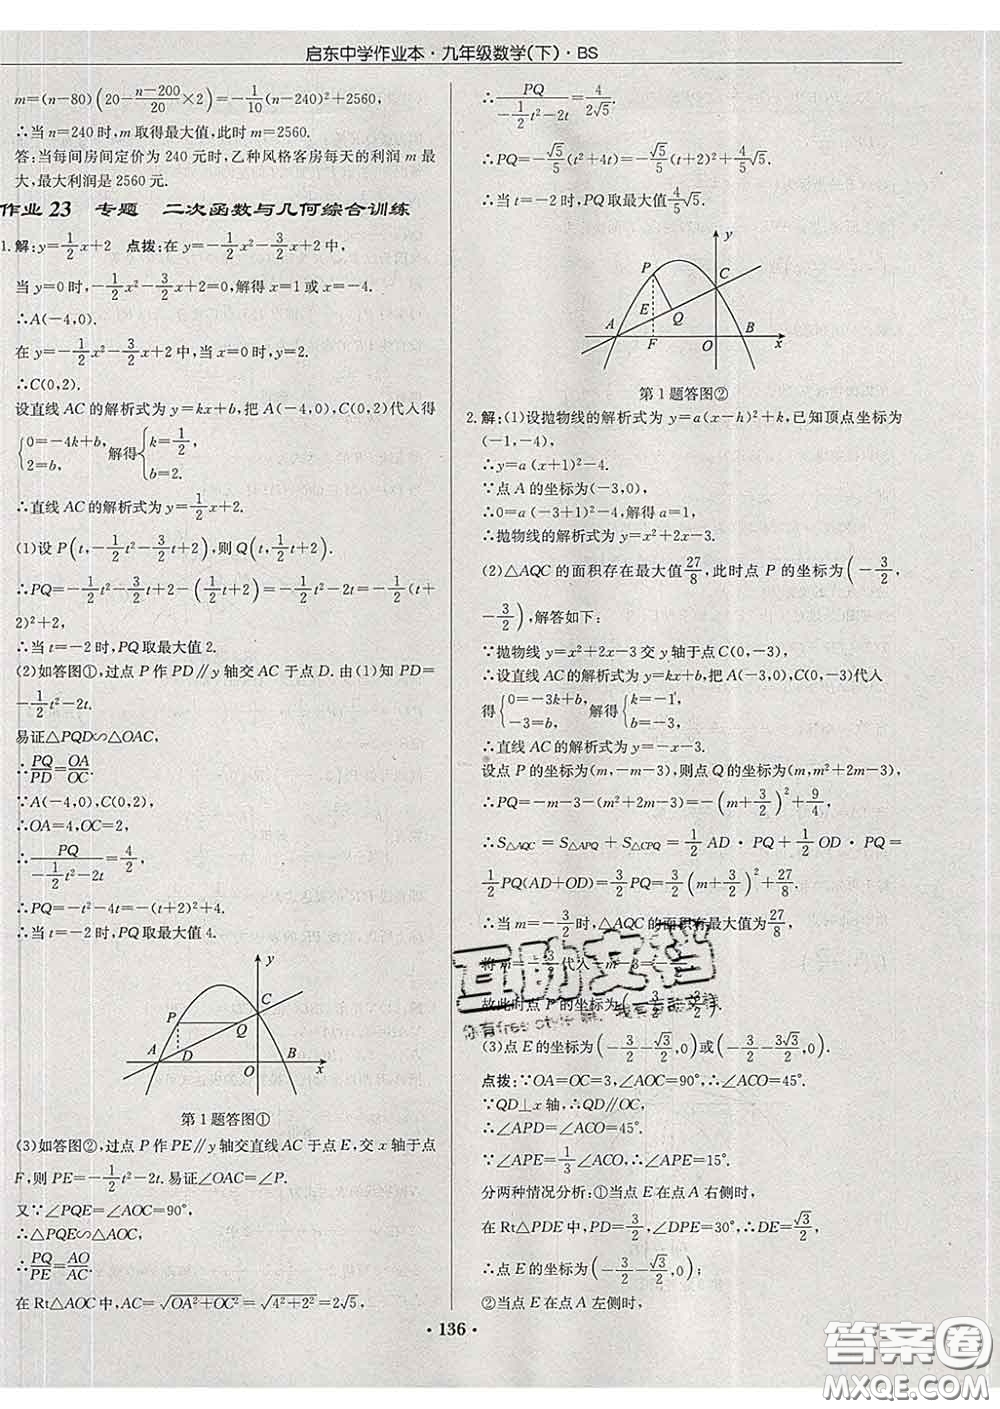 启东中学作业本·九年级数学(下)·BS
m=(n-80)(20-\frac{n-200}{20}×2)=-\frac{1}{10}(n-240)²+2560,
∴当 n=240 时,m 取得最大值,此时 m=2560.
答:当每间房间定价为 240 元时,乙种风格客房每天的利润 m 最
大,最大利润是 2560 元.
作业 23 专题 二次函数与几何综合训练
1.解:y=\frac{1}{2}x+2 点拨:在 y=-\frac{1}{2}x²-\frac{3}{2}x+2 中,
当 y=0 时,-\frac{1}{2}x²-\frac{3}{2}x+2=0,解得 x=1 或 x=-4.
∴A(-4,0).
在 y=-\frac{1}{2}x²-\frac{3}{2}x+2 中,当 x=0 时,y=2.
∴C(0,2).
设直线 AC 的解析式为 y=kx+b,把 A(-4,0),C(0,2)代人得
{0=-4k+b, 2=b. 解得 {k=\frac{1}{2}, b=2.
∴直线 AC 的解析式为 y=\frac{1}{2}x+2.
(1)设 P(t,-\frac{1}{2}t²-\frac{3}{2}t+2),则 Q(t,\frac{1}{2}t+2).
∴PQ=-\frac{1}{2}t²-\frac{3}{2}t+2-(\frac{1}{2}t+2)=-\frac{1}{2}t²-2t=-\frac{1}{2}(t+
2)²+2,
∴当 t=-2 时,PQ 取最大值 2.
(2)如答图①,过点 P 作 PD∥y 轴交 AC 于点 D. 由(1)知 PD=
-\frac{1}{2}t²-2t.
易证△PQD∽△OAC,
∴\frac{PQ}{PD}=\frac{OA}{OC}.
∵A(-4,0),C(0,2),
∴OA=4,OC=2,
∴\frac{PQ}{-\frac{1}{2}t²-2t}=\frac{4}{2},
∴PQ=-t²-4t=-(t+2)²+4.
∴当 t=-2 时,PQ 取最大值 4.
y
P
Q
C
A
D
O
B
x
第 1 题答图①
(3)如答图②,过点 P 作 PE∥y 轴交直线 AC 于点 E,交 x 轴于点
F,则 PE=-\frac{1}{2}t²-2t. 易证∠OAC=∠P.
又∵∠PQE=∠AOC=90°,
∴△PQE∽△AOC,
∴\frac{PQ}{PE}=\frac{AO}{AC}.
在 Rt△AOC 中,AC=√(OA²+OC²)=√(4²+2²)=2√5,
∴\frac{PQ}{-\frac{1}{2}t²-2t}=\frac{4}{2√5}.
∴PQ=-\frac{√5}{5}(t²+4t)=-\frac{√5}{5}(t+2)²+\frac{4}{5}√5.
∴当 t=-2 时,PQ 取最大值\frac{4}{5}√5.
y
P
C
E
Q
A
F
O
B
x
第 1 题答图②
2.解:(1)设抛物线的解析式为 y=a(x-h)²+k,已知顶点坐标为
(-1,-4),
∴y=a(x+1)²-4.
∵点 A 的坐标为(-3,0),
∴0=a(-3+1)²-4,解得 a=1,
∴抛物线的解析式为 y=x²+2x-3.
(2)△AQC 的面积存在最大值\frac{27}{8},此时点 P 的坐标为(-\frac{3}{2},
-\frac{3}{2}),解答如下:
∵抛物线 y=x²+2x-3 交 y 轴于点 C(0,-3),
∴设直线 AC 的解析式为 y=kx+b,把 A(-3,0),C(0,-3)代人
得 {0=-3k+b, -3=b. 解得 {k=-1, b=-3.
∴直线 AC 的解析式为 y=-x-3.
设点 P 的坐标为(m,-m-3),则点 Q 的坐标为(m,m²+2m-3),
∴PQ=-m-3-(m²+2m-3)=-(m+\frac{3}{2})²+\frac{9}{4},
∴S△AQC=S△APQ+S△CPQ=\frac{1}{2}AD·PQ+\frac{1}{2}OD·PQ=
\frac{1}{2}PQ(AD+OD)=\frac{3}{2}PQ=-\frac{3}{2}(m+\frac{3}{2})²+\frac{27}{8},
∴当 m=-\frac{3}{2}时,△AQC 的面积有最大值为\frac{27}{8},
将 m=-\frac{3}{2}代人-m-3=-\frac{3}{2},
故此时点 P 的坐标为(-\frac{3}{2},-\frac{3}{2}).
互助文档
(3)点 E 的坐标为(-\frac{3}{2}-\frac{√3}{2},0)或(-\frac{3}{2}-\frac{3}{2}√3,0).
点拨:∵OA=OC=3,∠AOC=90°,∴∠ACO=45°.
∵QD⊥x 轴,∴QD∥OC.
∴∠APD=∠ACO=45°.
∵∠APE=\frac{1}{3}∠ACO,∴∠APE=15°.
分两种情况分析:①当点 E 在点 A 右侧时,
在 Rt△PDE 中,PD=\frac{3}{2},∠DPE=30°,∴DE=\frac{√3}{2},
∴点 E 的坐标为(-\frac{3}{2}-\frac{√3}{2},0);
②当点 E 在点 A 左侧时,
·136·
答案圈
MXQE.COM